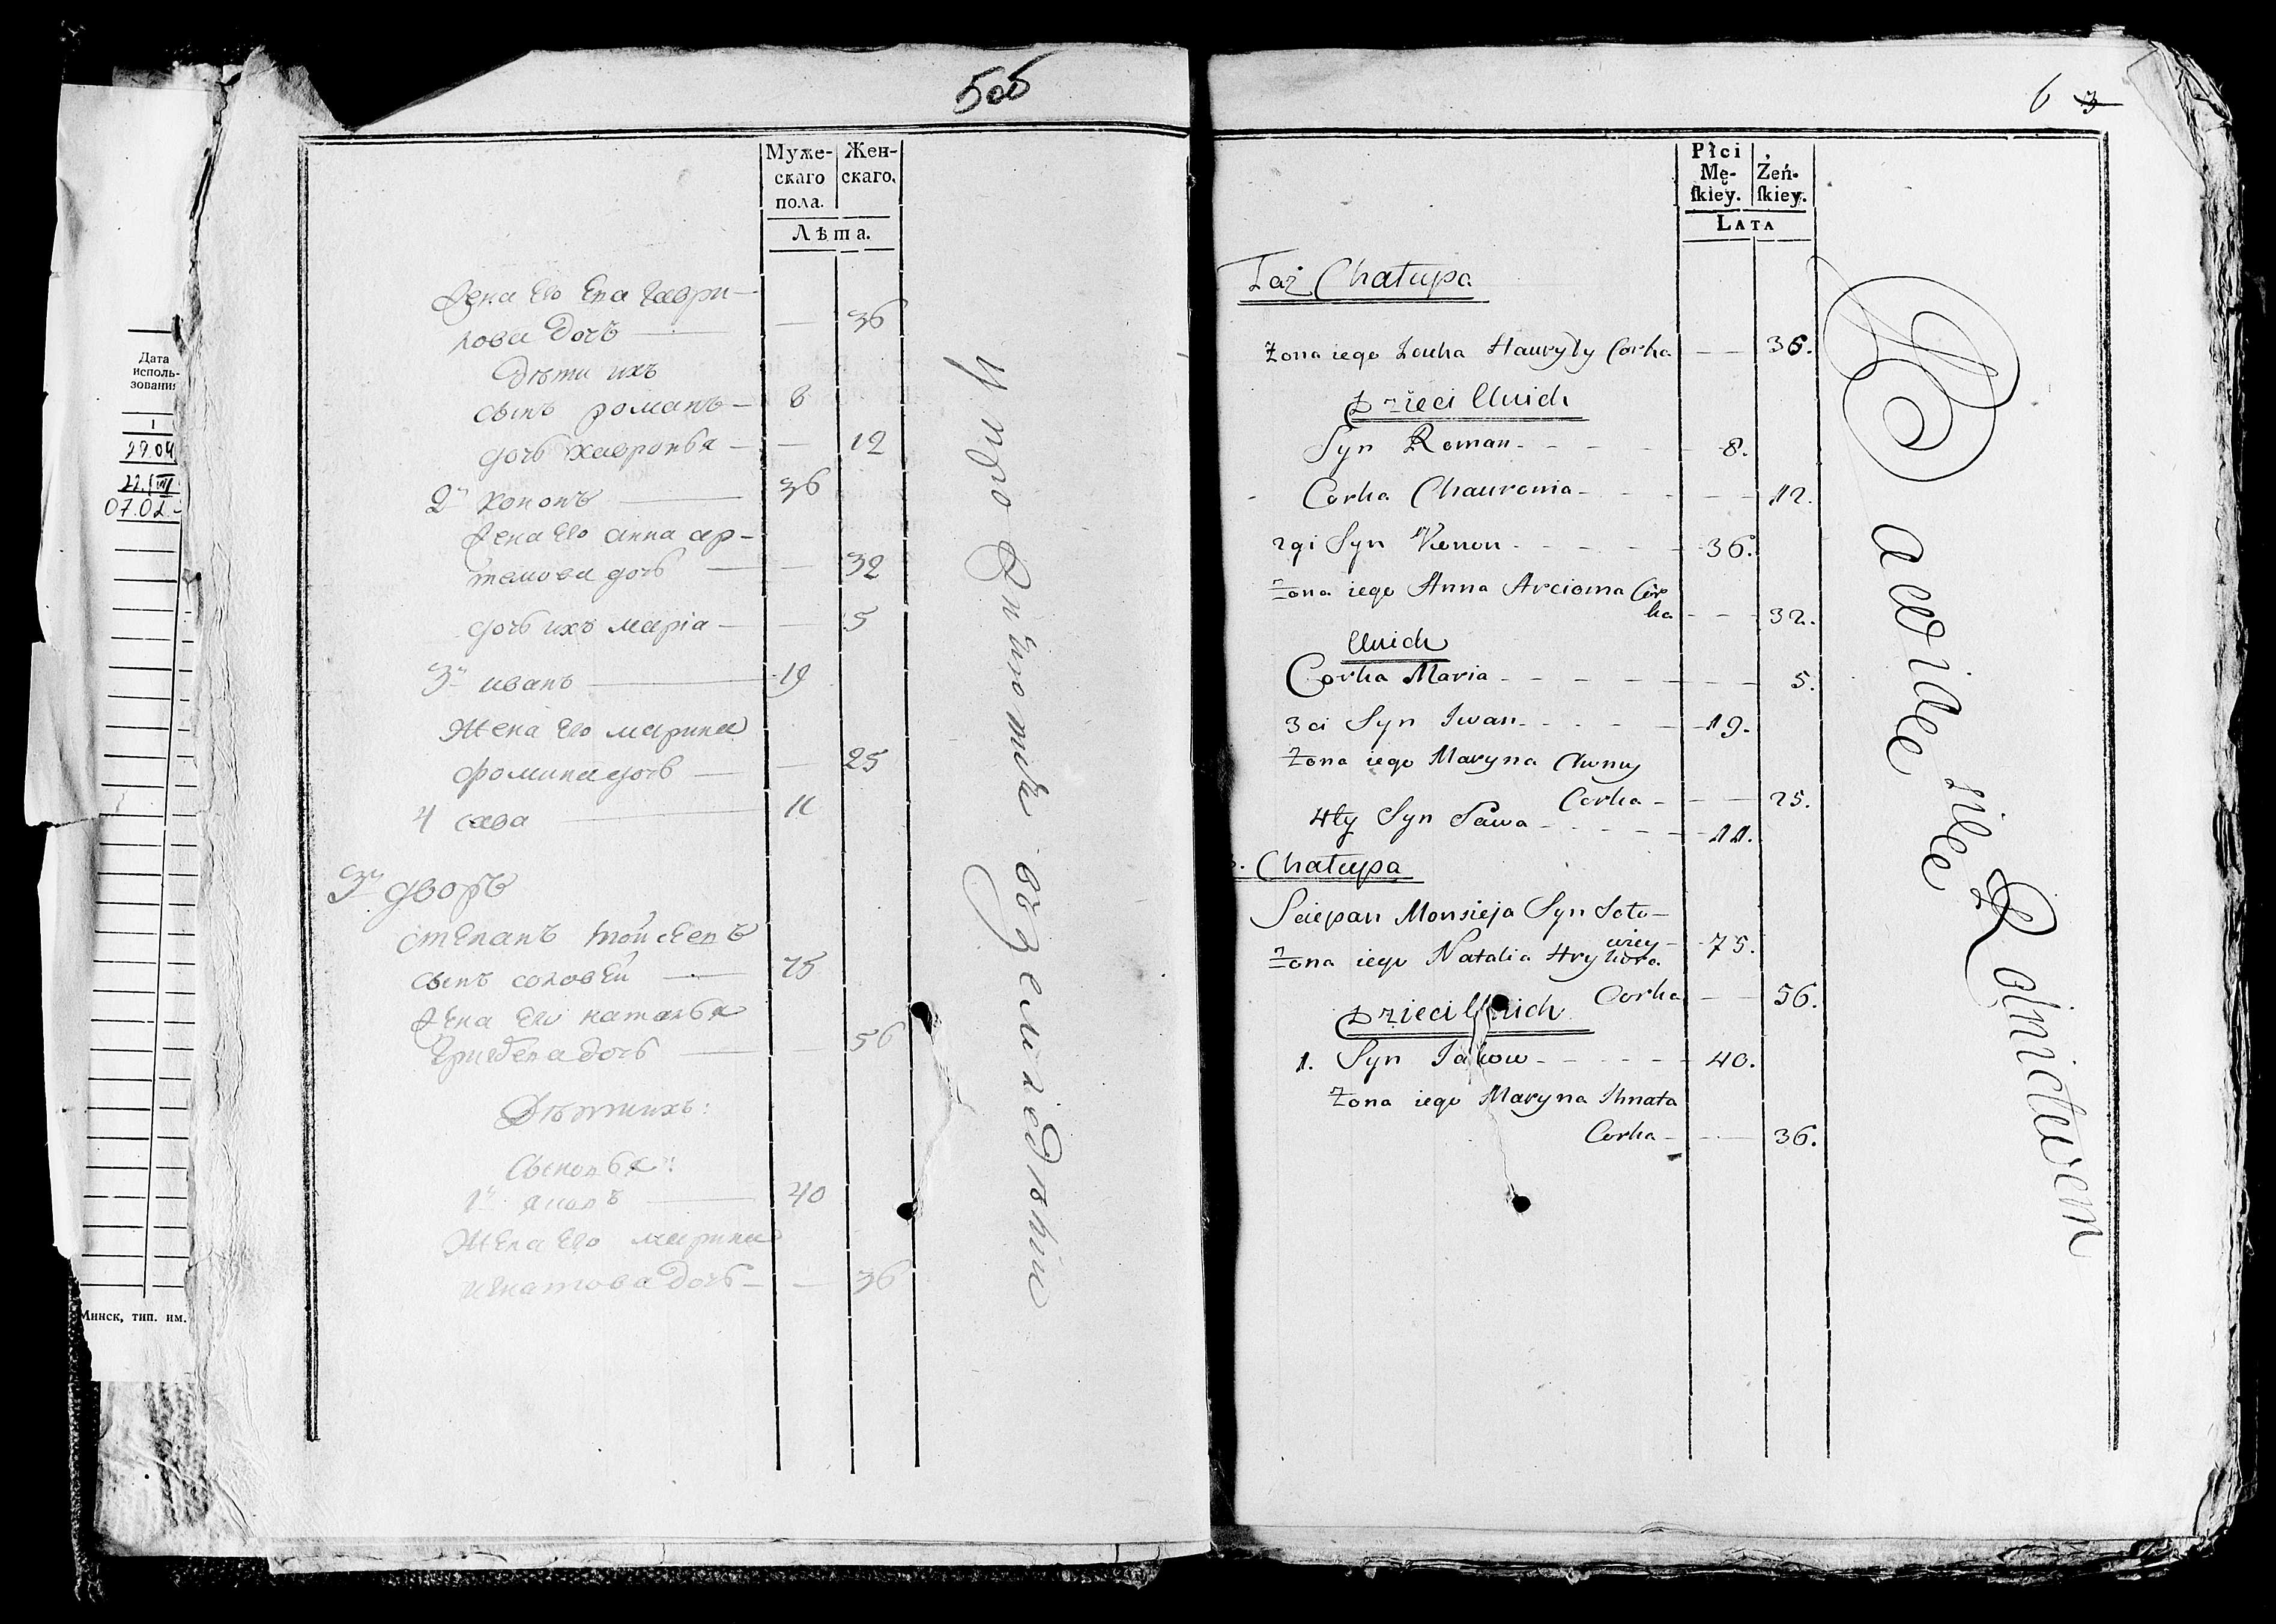 5об
Муже-
скаго
пола.
Жен-
скаго.
Лѣта.
Жена Его Ева Гаври-
лова дочь — — 36
Дѣти ихъ
сынъ романъ — 8
дочь хавронья — — 12
2й кононъ — 36
Жена Его анна ар-
темова дочь — — 32
дочь ихъ марiа — — 5
3й иванъ — 19
Жена Его марина
фомина дочь — — 25
4 сава — 11
3й дворъ
степанъ мойсеевъ
сынъ соловей — 75
Жена Его наталья
Григорьева дочь — — 56
Дѣти ихъ:
Сыновья:
1й яковъ — 40
Жена Его марина
игнатова дочь — — 36
Дата
исполь-
зования
1
29.04
22.VIII
07.02.
Минск, тип. им.
6 3
Płci
Mę-
skiey.
Żeń-
skiey.
LATA
Taż Chałupa
Żona iego Jewka Hauryły Corka — — 36.
Dzieci Unich
Syn Roman - - - 8.
Corka Chauronia - - - — 12.
2gi Syn Konon - - - 36.
Żona iego Anna Arcioma Cor
ka - - 32.
Unich
Corka Maria - - - - 5.
3ci Syn Iwan - - - 19.
Żona iego Maryna Chomy
Corka - — 25.
4ty Syn Sawa - - - 11.
3. Chałupa
Sciepan Mousieja Syn Soło-
wiey - 75.
Żona iego Natalia Hryhora
Corka — 56.
Dzieci Unich
1. Syn Jakow - - - 40.
Żona iego Maryna Ihnata
Corka - — 36.